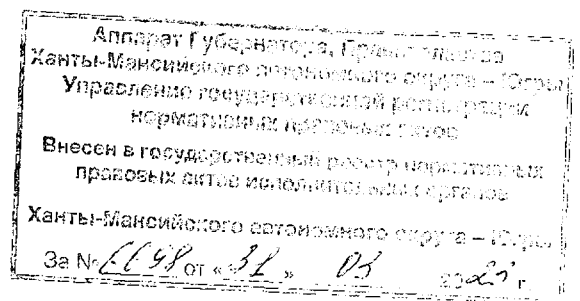 Аппарат Губернатора, Правительства
Ханты-Мансийского автономного округа – Югры
Управление государственной регистрации
нормативных правовых актов
Внесен в государственный реестр нормативных
правовых актов исполнительных органов
Ханты-Мансийского автономного округа – Югры
За № от « 31 » 03 2023 г.